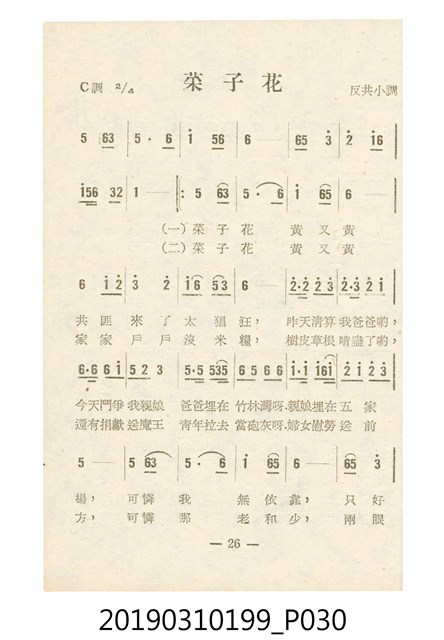 菜子花
C調 2/4 反共小調
5 63 | 5 · 6 | i 56 | 6 — | 65 3 | 2 16 |
i56 32 | 1 — |: 5 63 | 5 · 6 | i 65 | 6 — |
(一)菜子花 黃又黃
(二)菜子花 黃又黃
6 i2 | 3 2 | i6 53 | 6 — | 2·2 2 3 | 2·3 2 i |
共匪來了太猖狂, 昨天清算我爸爸喲,
家家戶戶沒米糧, 樹皮草根啃盡了喲,
6·6 6 i | 5 2 3 | 5·5 535 | 6 5 6 | i·i i6i | 2 i 2 |
今天鬥爭我親娘 爸爸埋在竹林灣呀.親娘埋在五家
還有捐獻送魔王 青年拉去當砲灰呀.婦女慰勞送前
5 — | 5 63 | 5 · 6 | i 65 | 6 — | 65 3 |
場, 可憐我 無依靠, 只好
方, 可憐那 老和少, 兩眼
— 26 —
20190310199_P030